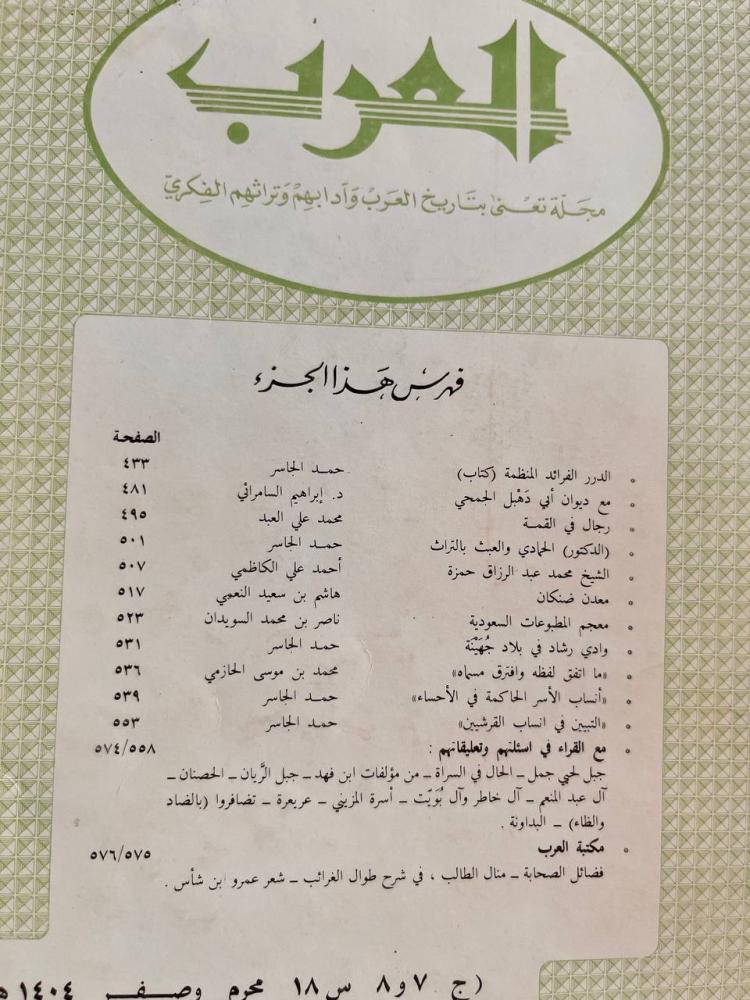 العرب
مجلة تعنى بتاريخ العرب وآدابهم وتراثهم الفكري
فهرس هذا الجزء
الصفحة
الدرر الفرائد المنظمة (كتاب) حمد الجاسر ٤٣٣
مع ديوان أبي دَهْبل الجمحي د. إبراهيم السامرائي ٤٨١
رجال في القمة محمد علي العبد ٤٩٥
(الدكتور) الحمادي والعبث بالتراث حمد الجاسر ٥٠١
الشيخ محمد عبد الرزاق حمزة أحمد علي الكاظمي ٥٠٧
معدن ضنكان هاشم بن سعيد النعمي ٥١٧
معجم المطبوعات السعودية ناصر بن محمد السويدان ٥٢٣
وادي رشاد في بلاد جُهَيْنَة حمد الجاسر ٥٣١
«ما اتفق لفظه وافترق مسماه» محمد بن موسى الحازمي ٥٣٦
«أنساب الأسر الحاكمة في الأحساء» حمد الجاسر ٥٣٩
«التبيين في انساب القرشيين» حمد الجاسر ٥٥٣
مع القراء في اسئلتهم وتعليقاتهم : ٥٧٤/٥٥٨
جبل لحيي جمل ــ الحال في السراة ــ من مؤلفات ابن فهد ــ جبل الرَّيان ــ الحصنان ــ
آل عبد المنعم ــ آل خاطر وآل بُوَيّت ــ أسرة المزيني ــ عريعرة ــ تضافروا (بالضاد
والظاء) ــ البداونة .
مكتبة العرب ٥٧٦/٥٧٥
فضائل الصحابة ــ منال الطالب ، في شرح طوال الغرائب ــ شعر عمرو ابن شأس .
(ج ٧ و ٨ س ١٨ محرم وصفر ١٤٠٤ هـ